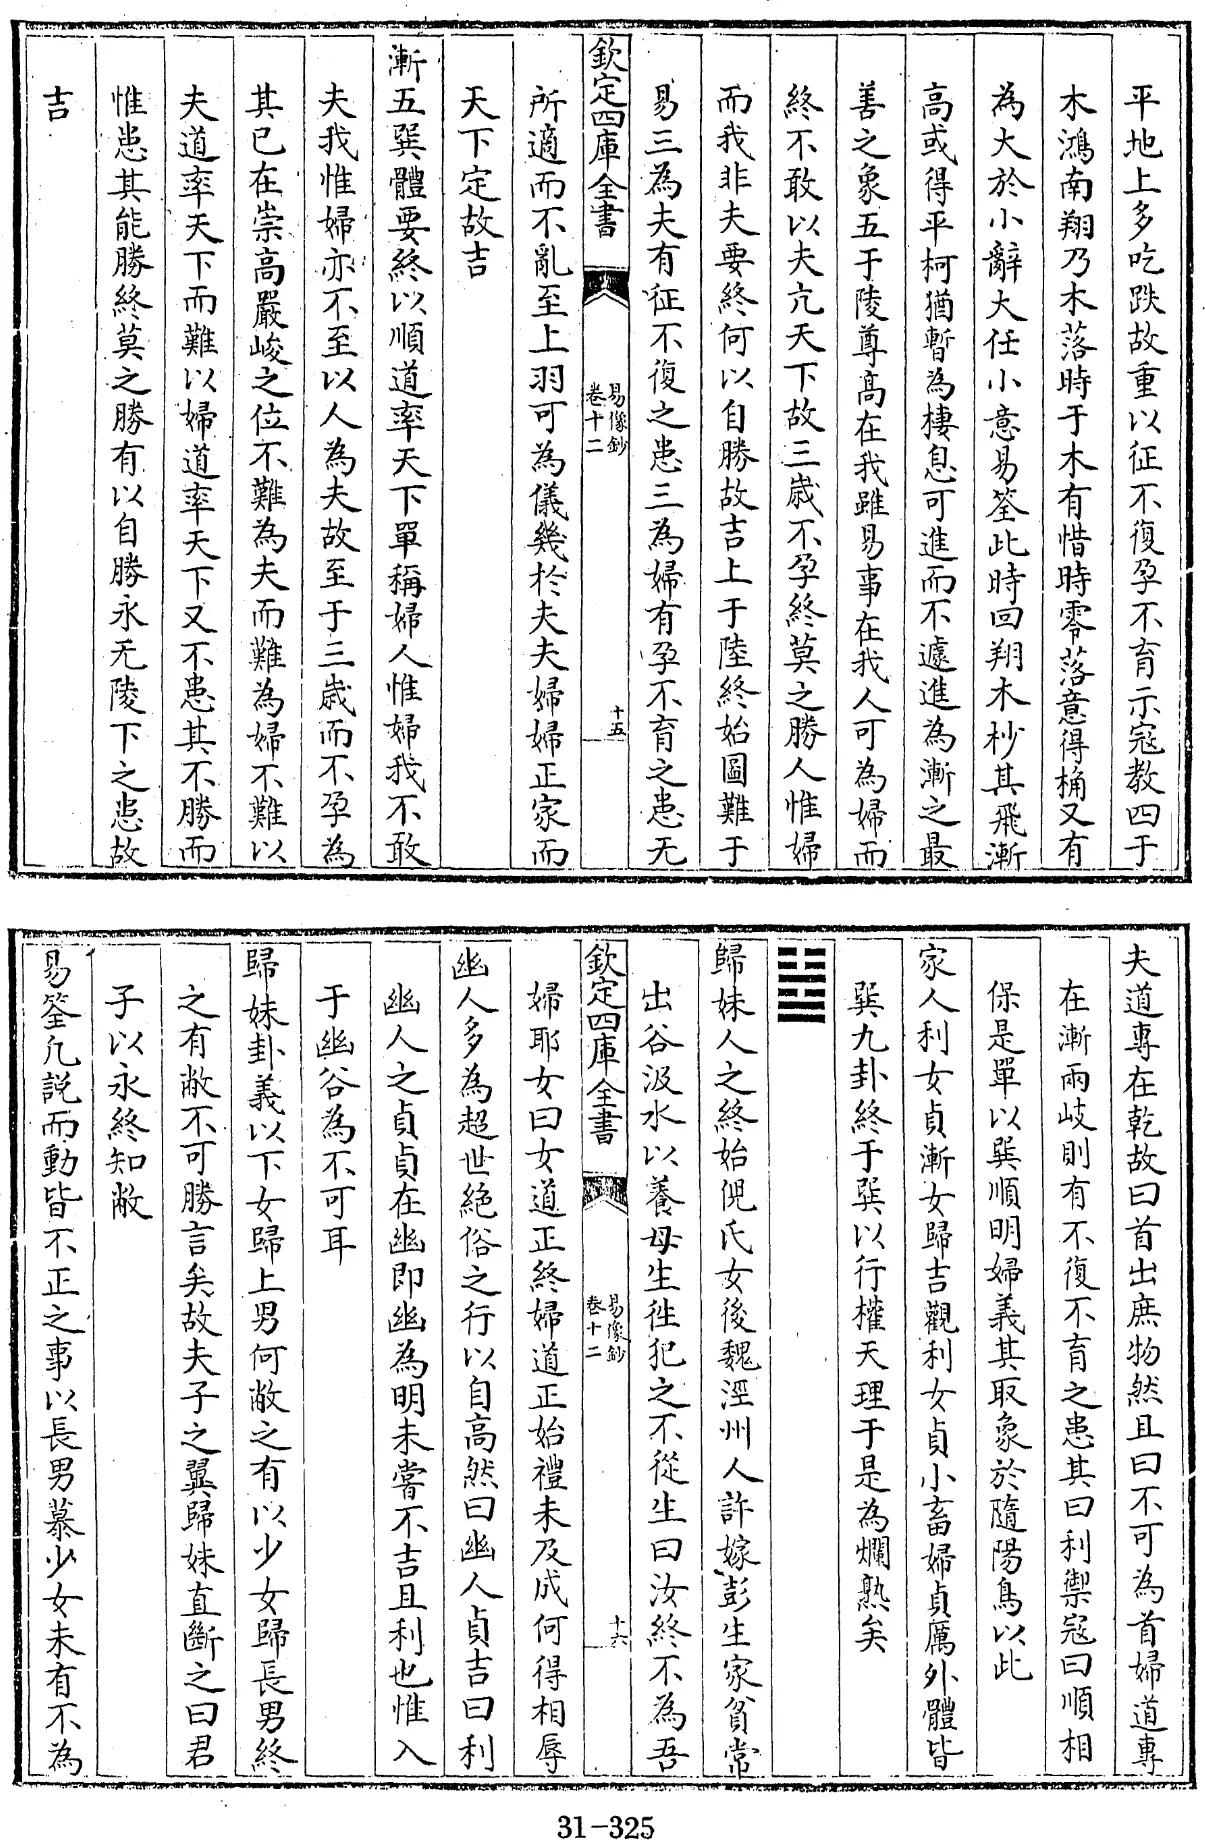 平地上多吃跌故重以征不復孕不育示寇教四于
木鴻南翔乃木落時于木有惜時零落意得桷又有
為大於小辭大任小意易筌此時回翔木杪其飛漸
高或得平柯猶暫為棲息可進而不遽進為漸之最
善之象五于陵尊高在我雖易事在我人可為婦而
終不敢以夫亢天下故三歲不孕終莫之勝人惟婦
而我非夫要終何以自勝故吉上于陸終始圖難于
易三為夫有征不復之患三為婦有孕不育之患无
欽定四庫全書
易像鈔
卷十二
十五
所適而不亂至上羽可為儀幾於夫夫婦婦正家而
天下定故吉
漸五巽體要終以順道率天下單稱婦人惟婦我不敢
夫我惟婦亦不至以人為夫故至于三歲而不孕為
其已在崇高嚴峻之位不難為夫而難為婦不難以
夫道率天下而難以婦道率天下又不患其不勝而
惟患其能勝終莫之勝有以自勝永无陵下之患故
吉
夫道專在乾故曰首出庶物然且曰不可為首婦道專
在漸兩岐則有不復不育之患其曰利禦寇曰順相
保是單以巽順明婦義其取象於隨陽鳥以此
家人利女貞漸女歸吉觀利女貞小畜婦貞厲外體皆
巽九卦終于巽以行權天理于是為爛熟矣
䷵
歸妹人之終始兕氏女後魏涇州人許嫁彭生家貧常
出谷汲水以養母生徃犯之不從生曰汝終不為吾
欽定四庫全書
易像鈔
卷十二
十六
婦耶女曰女道正終婦道正始禮未及成何得相辱
幽人多為超世絕俗之行以自高然曰幽人貞吉曰利
幽人之貞貞在幽即幽為明未嘗不吉且利也惟入
于幽谷為不可耳
歸妹卦義以下女歸上男何敝之有以少女歸長男終
之有敝不可勝言矣故夫子之翼歸妹直斷之曰君
子以永終知敝
易筌凡說而動皆不正之事以長男慕少女未有不為
31-325